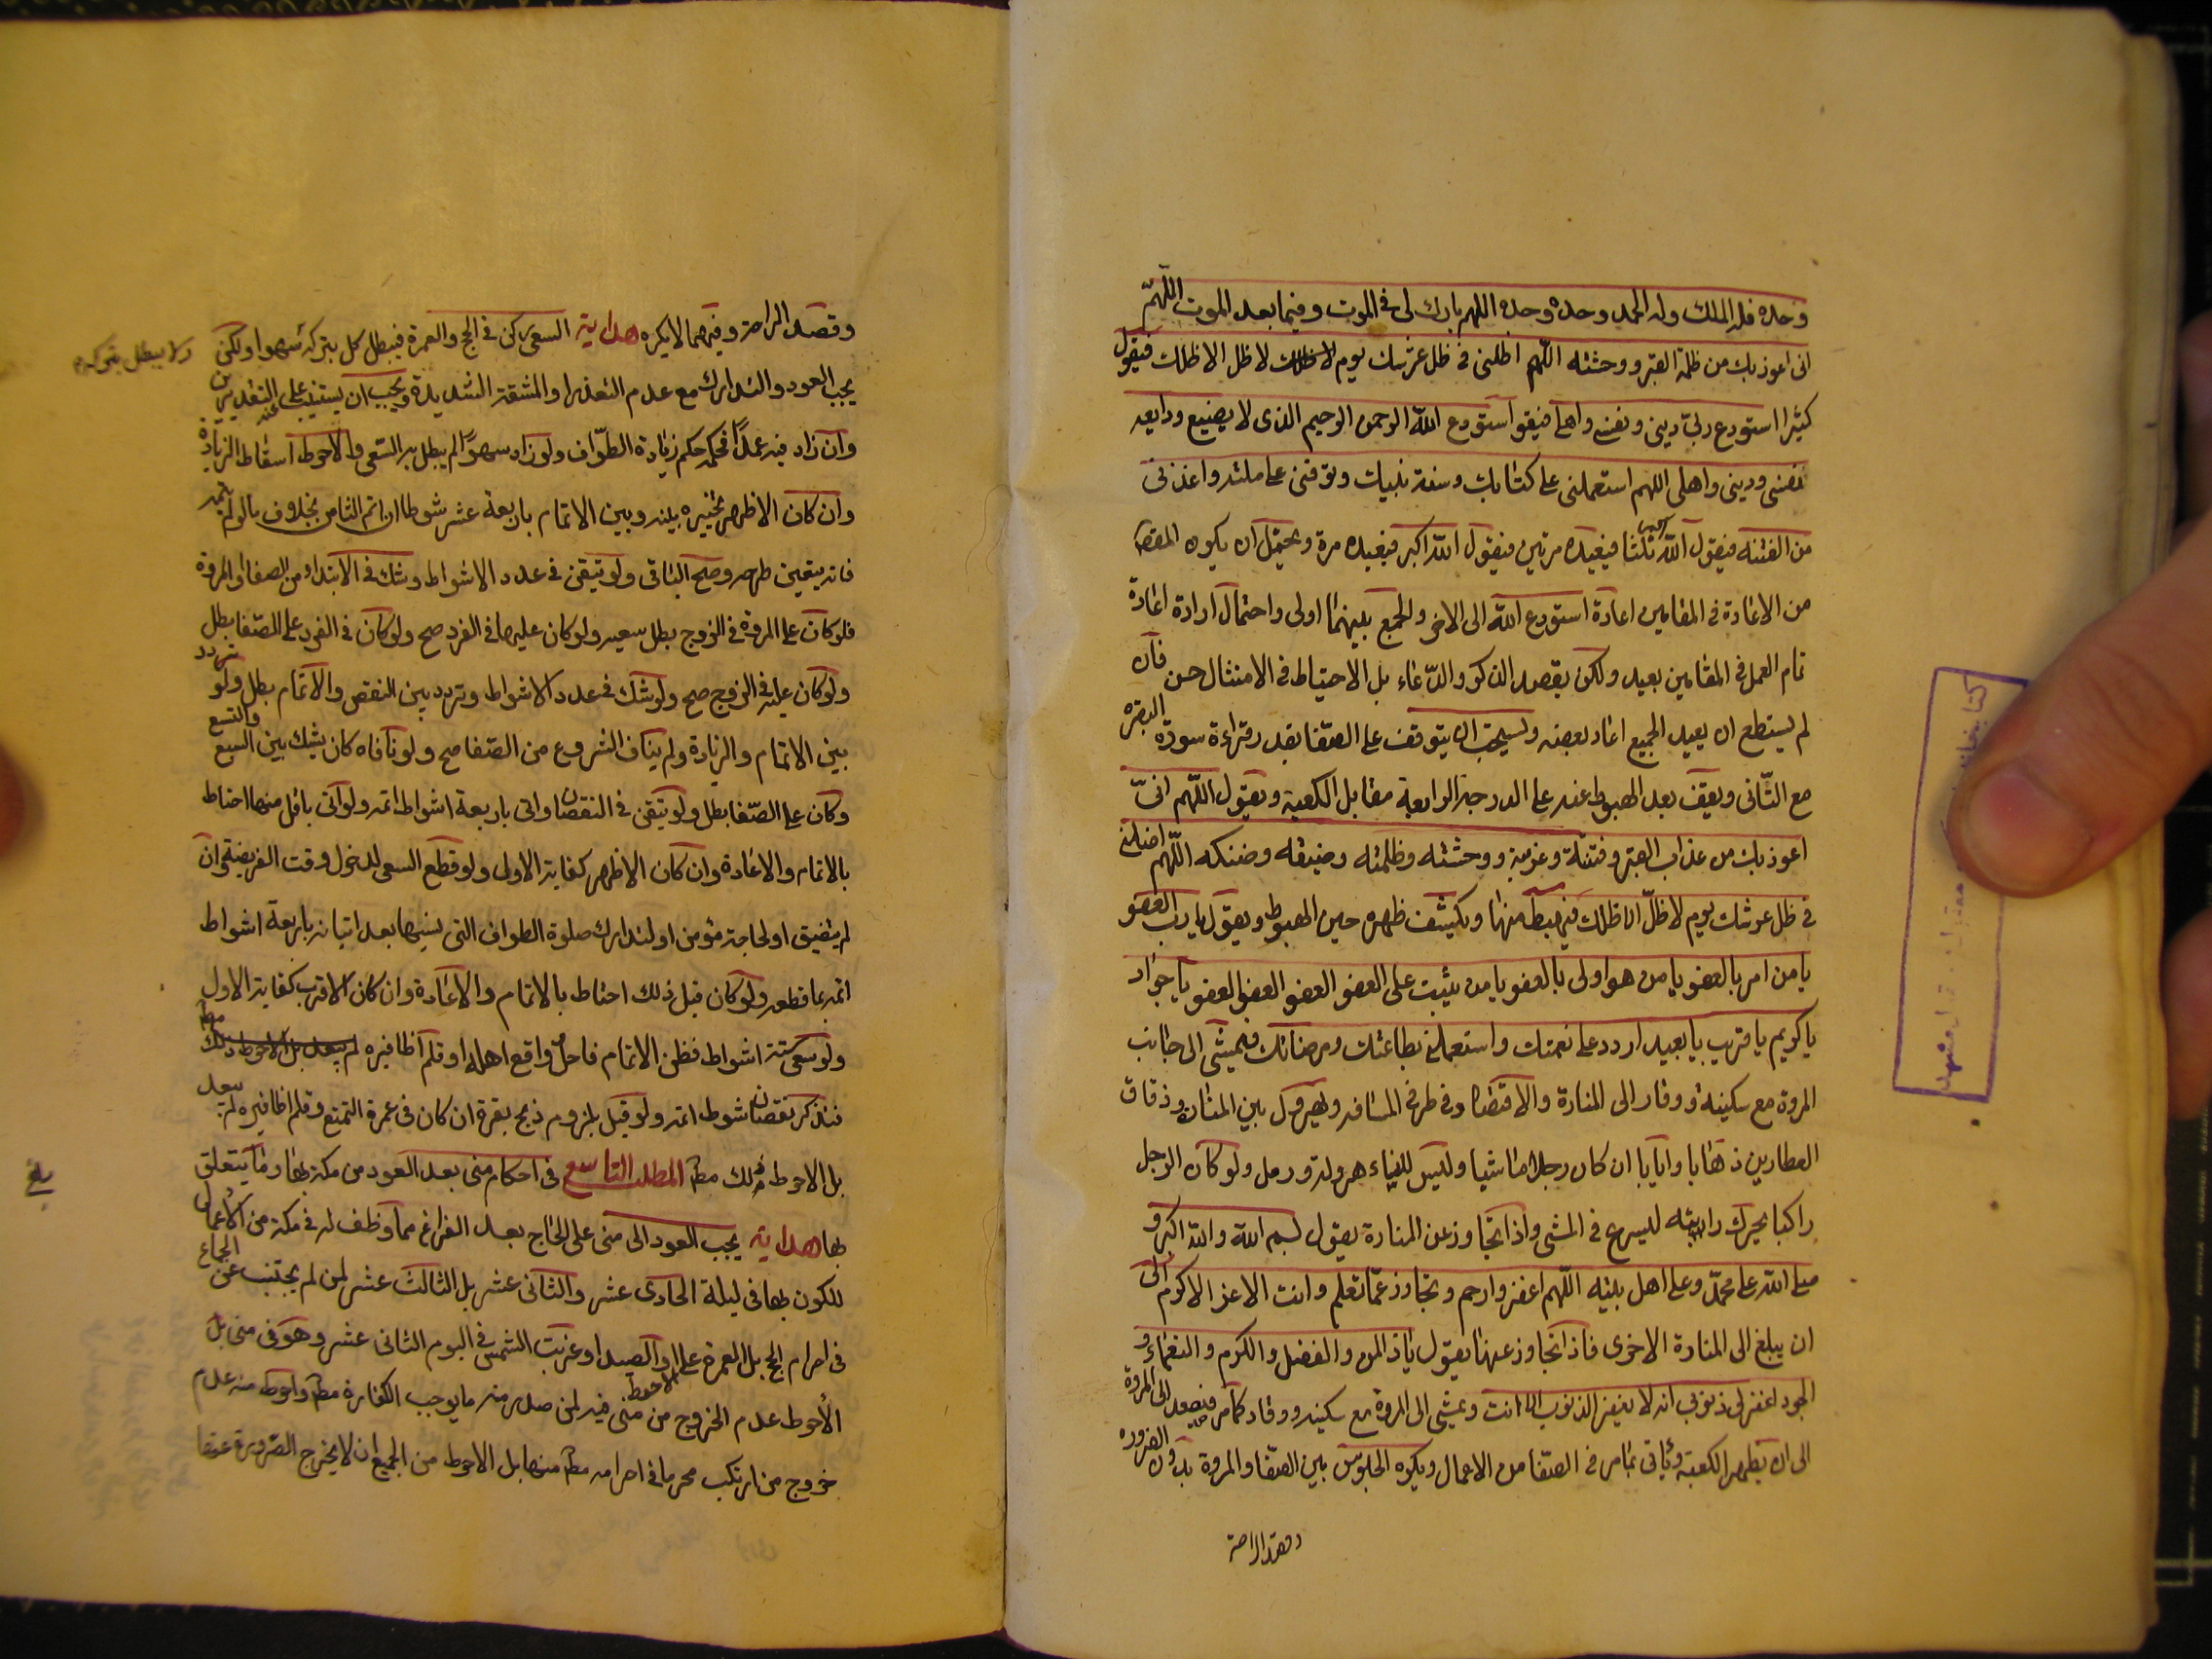 وحده فله الملك وله الحمد وحده وحده اللهم بارك لى فى الموت وفيما بعد الموت اللهم
انى اعوذ بك من ظلمة القبر ووحشته اللهم اظلنى فى ظل عرشك يوم لا ظل الا ظلك فيقول
كثيرا استودع ربى دينى ونفسى واهلى فيقول استودع الله الرحمن الرحيم الذى لا يضيع ودايعه
نفسى ودينى واهلى اللهم استعملنى على كتابك وسنة نبيك وتوفنى على ملته واعذنى
من الفتنه فيقول الله اكبر ثلثا فيعيده مرتين فيقول الله اكبر فيعيده مرة ويحتمل ان يكون المقصد
من الاعادة فى المقامين اعادة استودع الله الى الاخر والجمع بينهما اولى واحتمال ارادة اعادة
تمام العمل فى المقامين بعيد ولكن بقصد الذكر والدعاء بل الاحتياط فى الامتثال حسن فان
لم يستطع ان يعيد الجميع اعاد بعضه ويستحب ان يتوقف على الصفا بقدر قراءة سورة البقره
مع التأنى ويقف بعد الهبوط عنه على الدرجة الرابعة مقابل الكعبة ويقول اللهم انى
اعوذ بك من عذاب القبر وفتنته وغربته ووحشته وظلمته وضيقه وضنكه اللهم اظلنى
فى ظل عرشك يوم لا ظل الا ظلك فيهبط منها ويكشف ظهره حين الهبوط ويقول يا رب العفو
يا من امر بالعفو يا من هو اولى بالعفو يا من يثيب على العفو العفو العفو العفو يا جواد
يا كريم يا قريب يا بعيد اردد على نعمتك واستعملنى بطاعتك ومرضاتك فيمشى الى جانب
المروة مع سكينة ووقار الى المنارة والاقتصاد فى طرفى المسافه ويهرول بين المنارة وزقاق
العطارين ذهابا وايابا ان كان رجلا ماشيا وليس للنساء هرولة ورمل ولو كان الرجل
راكبا يحرك دابته ليسرع فى المشى واذا تجاوز عن المنارة يقول بسم الله والله اكبر و
صلى الله على محمد وعلى اهل بيته اللهم اغفر وارحم وتجاوز عما تعلم وانت الاعز الاكرم الى
ان يبلغ الى المنارة الاخرى فاذا تجاوز عنها يقول يا ذا المن والفضل والكرم والنعماء و
الجود اغفر لى ذنوبى انه لا يغفر الذنوب الا انت ويمشى الى المروة مع سكينه ووقار كما مر فيصعد الى المروة
الى ان يظهر الكعبة ويأتى بما مر فى الصفا من الاعمال ويكره الجلوس بين الصفا والمروة بدون الضروره
وقصد الراحة
وقصد الراحة وفيهما لا يكره هداية السعى ركن فى الحج والعمرة فيبطل كل بتركه سهوا ولكن
ولا يبطل بتركه
يجب العود والتدارك مع عدم التعذر او المشقة الشديدة ويجب ان يستنيب عنه على التقديرين
وان زاد فيه عمدا فحكمه حكم زيادة الطواف ولو زاد سهوا لم يبطل به السعى والاحوط اسقاط الزيادة
وان كان الاظهر تخييره بينه وبين الاتمام باربعة عشر شوطا ان اتم الثامن بخلاف ما لو لم يتمه
فانه يتعين طرحه وصح الباقى ولو تيقن فى عدد الاشواط وشك فى الابتداء من الصفا او المروة
فلو كان على المروة فى الزوج بطل سعيه ولو كان عليها فى الفرد صح ولو كان فى الفرد على الصفا بطل
ولو كان عليه فى الزوج صح ولو شك فى عدد الاشواط وتردد بين النقص والاتمام بطل ولو تردد
بين الاتمام والزيادة ولم يناف الشروع من الصفا صح ولو نافاه كان يشك بين السبع والتسع
وكان على الصفا بطل ولو تيقن فى النقصان واتى باربعة اشواط اتمه ولو اتى باقل منها احتاط
بالاتمام والاعادة وان كان الاظهر كفاية الاول ولو قطع السعى لدخول وقت الفريضة وان
لم يتضيق او لحاجة مؤمن او لتدارك صلوة الطواف التى نسيها بعد اتيانه باربعة اشواط
اتمه بما قطعه ولو كان قبل ذلك احتاط بالاتمام والاعادة وان كان الاقرب كفاية الاول
ولو سعى ستة اشواط فظن الاتمام فاحل وواقع اهله او قلم اظافيره لم يبعد بل الاحوط ذلك مط
فتذكر نقصان شوط اتمه ولو قيل بلزوم ذبح بقرة ان كان فى عمرة التمتع وقلم اظافيره لم يبعد
بل الاحوط ذلك مط المطلب التاسع فى احكام منى بعد العود من مكة بها وما يتعلق
بها هداية يجب العود الى منى على الحاج بعد الفراغ مما وظف له فى مكة من الاعمال
للكون بها فى ليلة الحادى عشر والثانى عشر بل الثالث عشر لمن لم يجتنب عن الجماع
فى احرام الحج بل العمرة على الاحوط او الصيد او غربت الشمس فى اليوم الثانى عشر وهو فى منى بل
الأحوط عدم الخروج من منى فيه لمن صدر منه ما يوجب الكفارة مط واحوط منه عدم
خروج من ارتكب محرما فى احرامه مط منها بل الاحوط من الجميع ان لا يخرج الصرورة عنها
بلغ